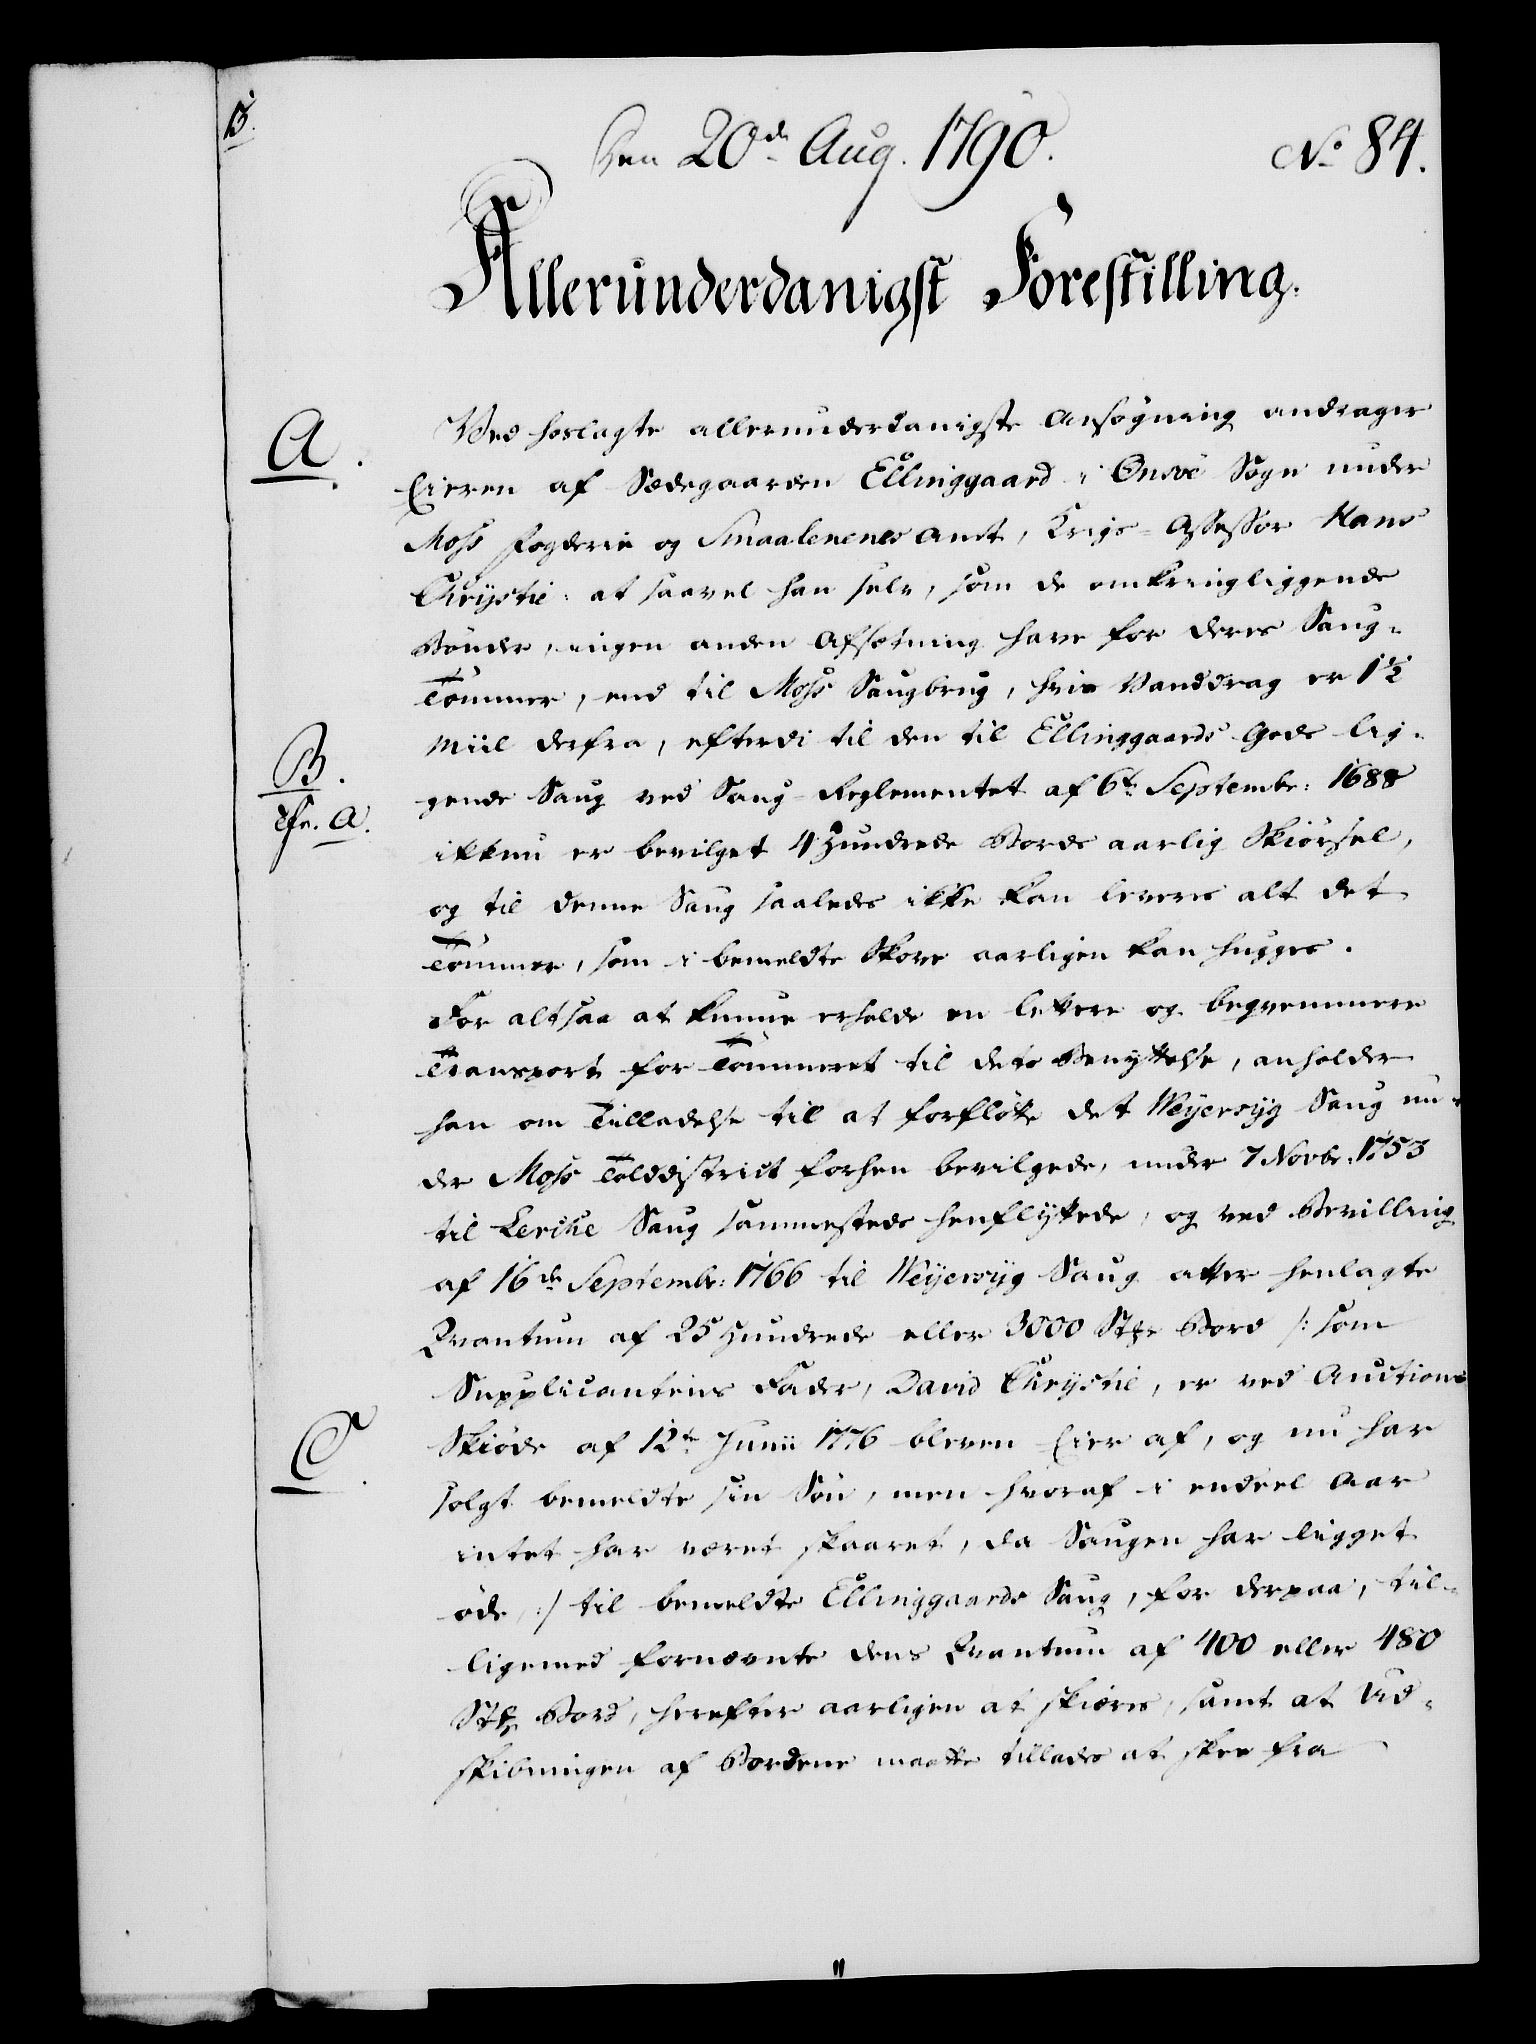 B.
Den 20de Aug. 1790.
No 84.
Allerunderdanigst Forestilling.
A.
Ved hoslagte allerunderdanigste Ansøgning andrager
Eieren af Sædegaarden Ellinggaard i Onsöe Sogn under
Moss Fogderie og Smaalenenes Amt, Krigs-Assessor Hans
Chrystie: at saavel han selv, som de omkringliggende
Bönder, ingen anden Afsætning have for deres Saug-
Tömmer, end til Moss Saugbrug, hvis Vanddrag er 1½
Miil derfra, efterdi til den til Ellinggaards Gods lig-
B.
gende Saug ved Saug-Reglementet af 6te Septembr: 1688
Cfr. A.
ikkun er bevilget 4 Hundrede Bords aarlig Skiörsel,
og til denne Saug saaledes ikke kan leveres alt det
Tömmer, som i bemeldte Skove aarligen kan hugges.
For altsaa at kunne erholde en lettere og beqvemmere
Transport for Tömmeret til dets Benyttelse, anholder
han om Tilladelse til at forflötte det Weyersyg Saug un-
der Moss Tolddistrict forhen bevilgede, under 7 Novbr. 1753
til Lerche Saug sammesteds henflyttede, og ved Bevilling
af 16de Septembr: 1766 til Weyersyg Saug atter henlagte
Qvantum af 25 Hundrede eller 3000 Stkr Bord /: som
Supplicantens Fader, David Chrystie, er ved Auctions
C.
Skiöde af 12te Junii 1776 bleven Eier af, og nu har
solgt bemeldte sin Sön, men hvoraf i endeel Aar
intet har været skaaret, da Saugen har ligget
öde, :/ til bemeldte Ellinggaards Saug, for derpaa, til-
ligemed fornævnte dens Qvantum af 400 eller 480
Stkr Bord, herefter aarligen at skiæres, samt at Ud-
skibningen af Bordene maatte tillades at skee fra